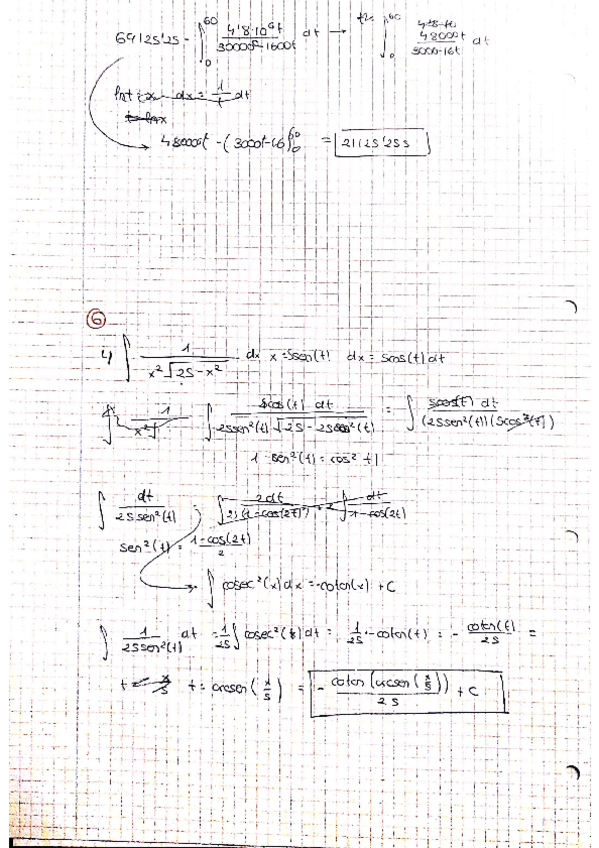 691252'5 - ∫₀⁶⁰ 4'8·10⁶t / 300000-1600t dt → ∫₀⁶⁰ 48000t / 3000-16t dt
lnt = x dx = 1/t dt
48000t - (3000t-16)₀⁶⁰ = 21125'25 s
6
4) ∫ 1 / x²√25-x² dx x = 5sen(t) dx = 5cos(t)dt
∫ 1 / x²√ ∫ 5cos(t) dt / 25sen²(t)√25-25sen²(t) = ∫ 5cos(t) dt / (25sen²(t))(5cos(t))
1 sen²(t) = cos² t
∫ dt / 25sen²(t) ∫ 2dt / (1-cos(2t)) = 2 ∫ dt / 1-cos(2t)
sen²(t) = 1-cos(2t) / 2
∫ cosec²(x)dx = -cotan(x) + C
∫ 1 / 25sen²(t) dt = 1/25 ∫ cosec²(t)dt = 1/25 · -cotan(t) = - cotan(t) / 25 =
t = x/5 t = arcsen(x/5) = - cotan(arcsen(x/5)) / 25 + C